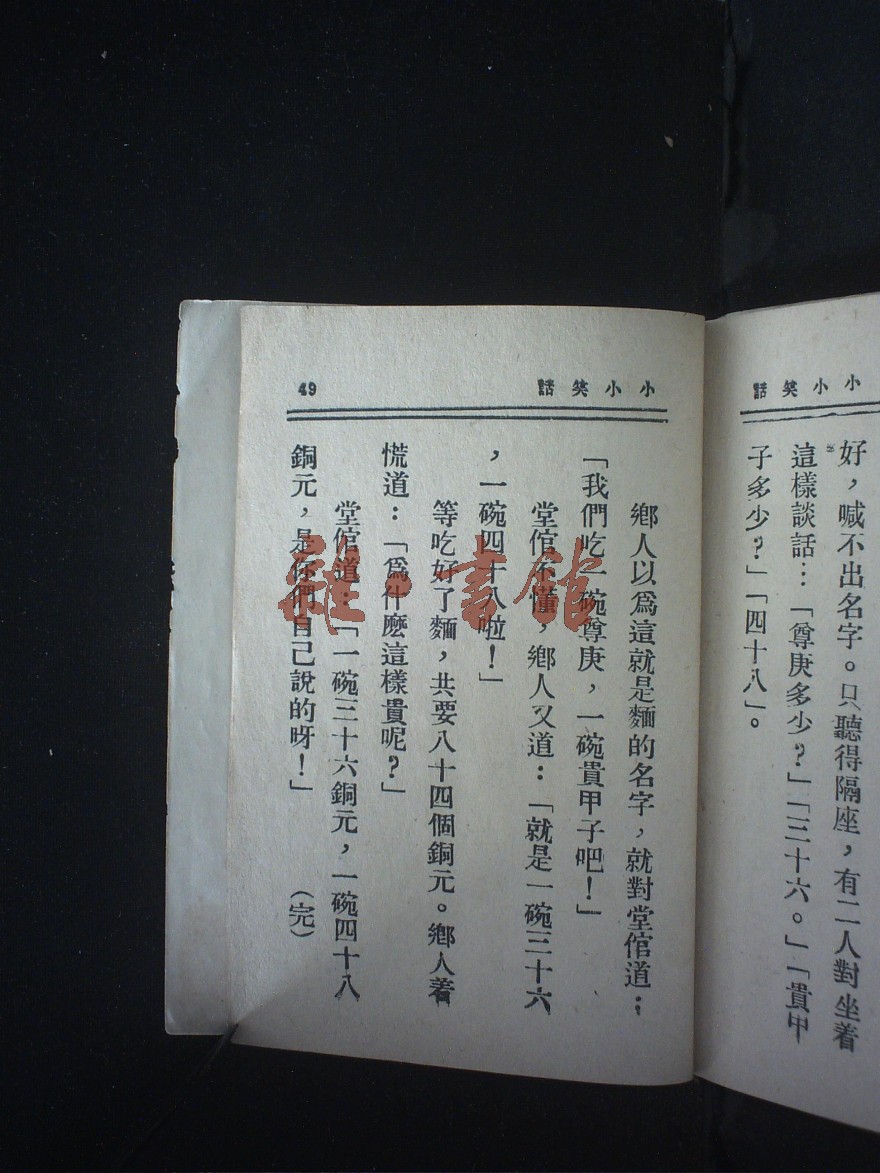 小小笑話
好，喊不出名字。只聽得隔座，有二人對坐着
這樣談話：「尊庚多少？」「三十六。」「貴甲
子多少？」「四十八」。
小小笑話
49
鄉人以爲這就是麵的名字，就對堂倌道：
「我們吃一碗尊庚，一碗貴甲子吧！」
堂倌不懂，鄉人又道：「就是一碗三十六
，一碗四十八啦！」
等吃好了麵，共要八十四個銅元。鄉人着
慌道：「爲什麽這樣貴呢？」
堂倌道：「一碗三十六銅元，一碗四十八
銅元，是你們自己說的呀！」
（完）
雜·書館